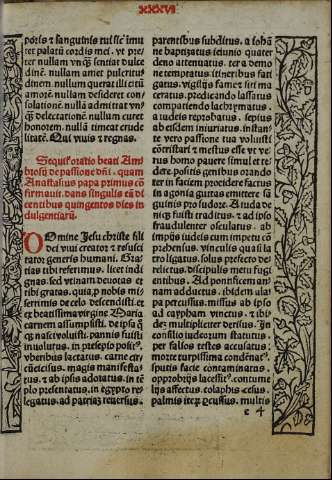 xxxvi
poris ⁊ sanguinis tui sic imu
ret palatū cordis mei. vt pre
ter nullam vnq̄ sentiat dulce
dinē. nullam amet pulcritu
dinem. nullum querat illicitū
amorē. nullam desideret con
solationē. nullā admittat vn
q̄ delectationē. nullum curet
honorem. nullā timeat crude
litatē. Qui viuis ⁊ regnas.
Sequitᷓ oratio beati Am
brosij de passione dn̄i. quam
Anastasius papa primus cō
firmauit. dans singulis eā di
centibus quingentos dies in
dulgentiarū.
Domine Jesu christe fili
dei viui creator ⁊ resusci
tator generis humani. Gra
tias tibi referimus. licet indi
gnas. sed vtinam deuotas et
tibi gratas. quia p̄ nobis mi
serrimis de celo descendisti. et
ex beatissima virgine Maria
carnem assumpsisti. de ipsa q̄
q̄ nasci voluisti. pannis fuisti
inuolutus. in presepio positꝰ.
vberibus lactatus. carne cir
cūcisus. magis manifesta
tus. ⁊ ab ipsis adoratus. in tē
plo presentatus. in egypto re
legatus. ad patriā reuersus.
parentibus subditus. a iohā
ne baptizatus ieiunio quater
deno attenuatus. ter a demo
ne temptatus itineribus fati
gatus. vigilijs fame ⁊ siti ma
ceratus. predicando lassatus
compatiendo lachrymatus.
a iudeis reprobatus. sepius
ab eisdem iniuriatus. instan
te vero passione tua voluisti
cōtristari ⁊ mestus esse vt ve
rus homo pauere simul et te
dere. positis genibus orando
ter in faciem procidere factus
in agonia guttas emittere sā
guinis pro sudore. A iuda de
nicq̄ fuisti traditus. ⁊ ad ipso
fraudulenter osculatus. ab
impijs iudeis cum impetu cō
prehensus. vinculis quasi la
tro ligatus. solus prefecto de
relictus. discipulis metu fugi
entibus. Ad pontificem an
nam adductus. ibidem ala
pa percussus. missus ab ipso
ad caypham vinctus. ⁊ ibi
dez multipliciter derisus. In
consilio iudeorum statutus.
per falsos testes accusatus.
morte turpissima condēnatꝰ.
sputis facie contaminatus.
opprobrijs lacessitꝰ. contume
lijs affectus. colaphis cesus.
palmis iterꝝ percussus. multis
e 4